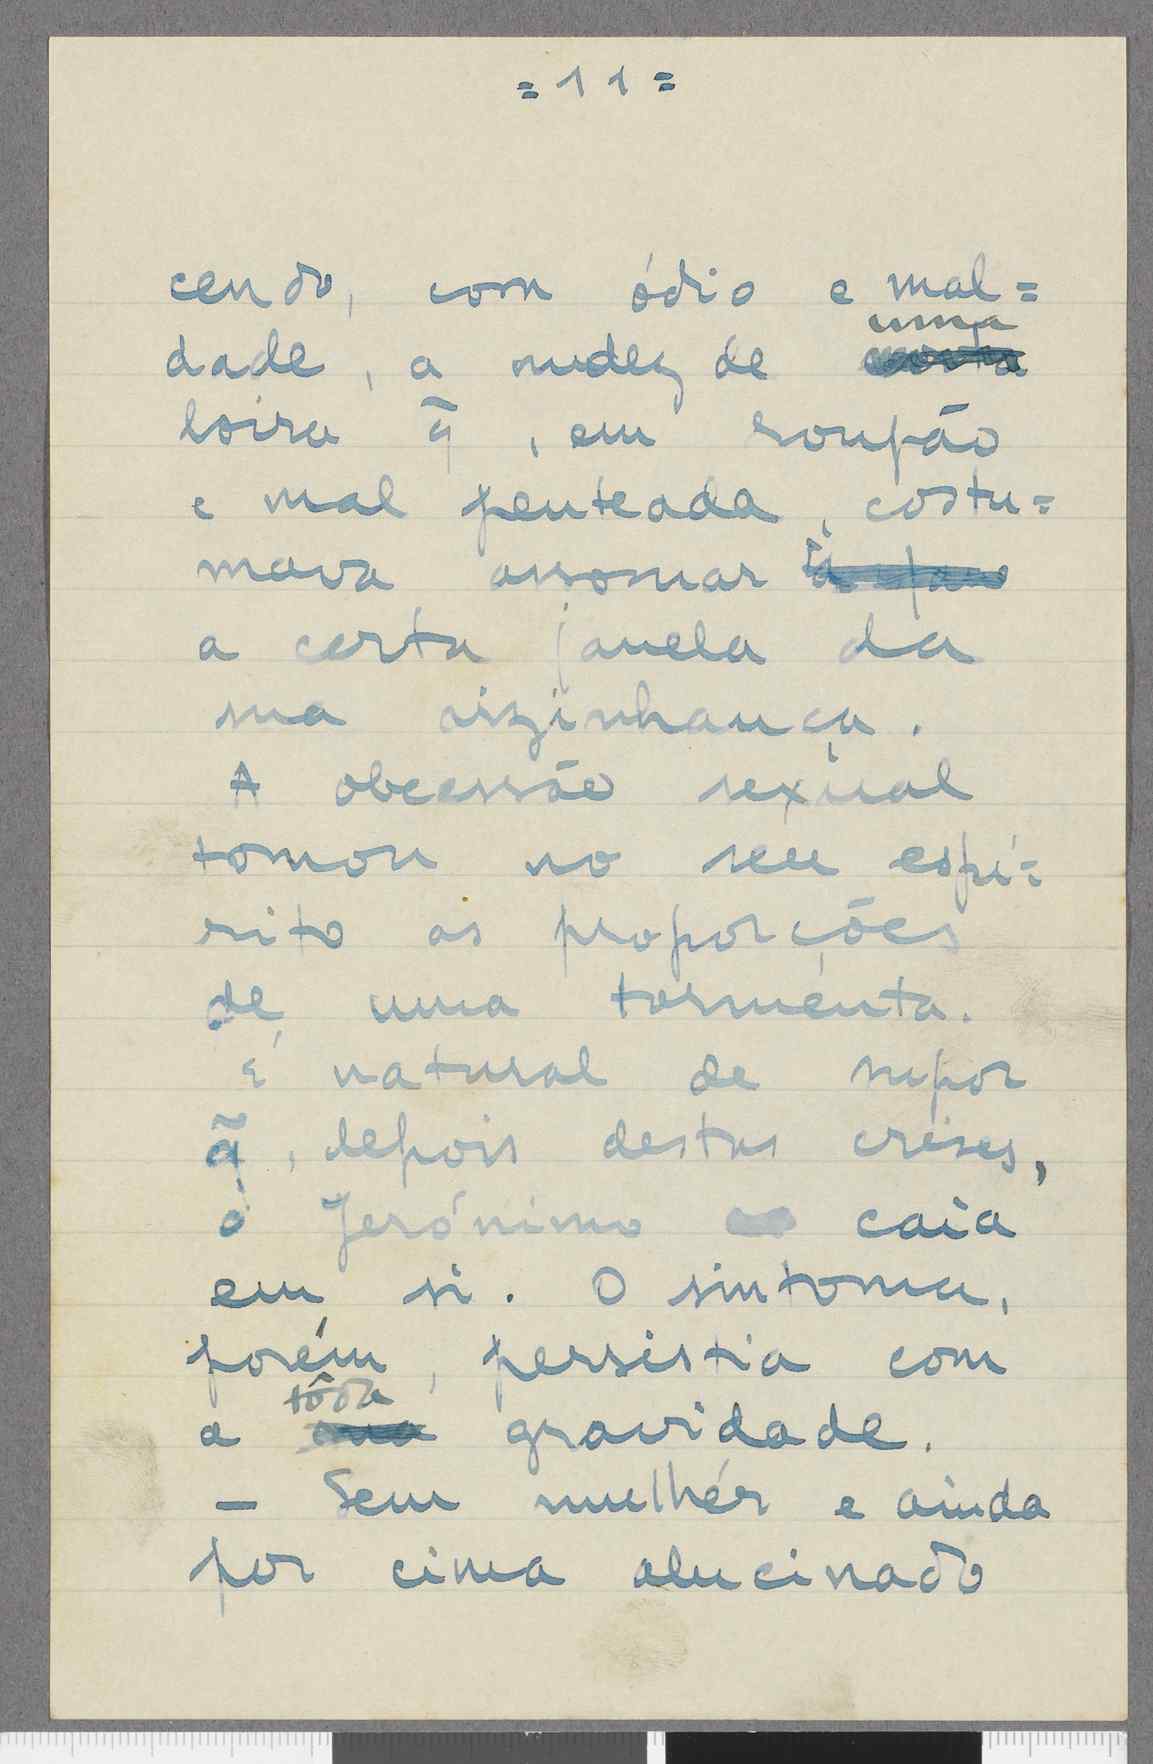 = 11 =
cendo, com ódio e mal=
uma
dade, a nudez de
loira q̃, em roupão
e mal penteada, costu=
mava assomar
a certa janela da
sua vizinhança.
A obcessão sexual
tomou no seu espí=
rito as proporções
de uma tormenta.
É natural de supor
q̃, depois destas crises,
o Jerónimo caía
em si. O sintoma,
porém, persistia com
tôda
a sua gravidade.
— Sem mulhér e ainda
por cima alucinado